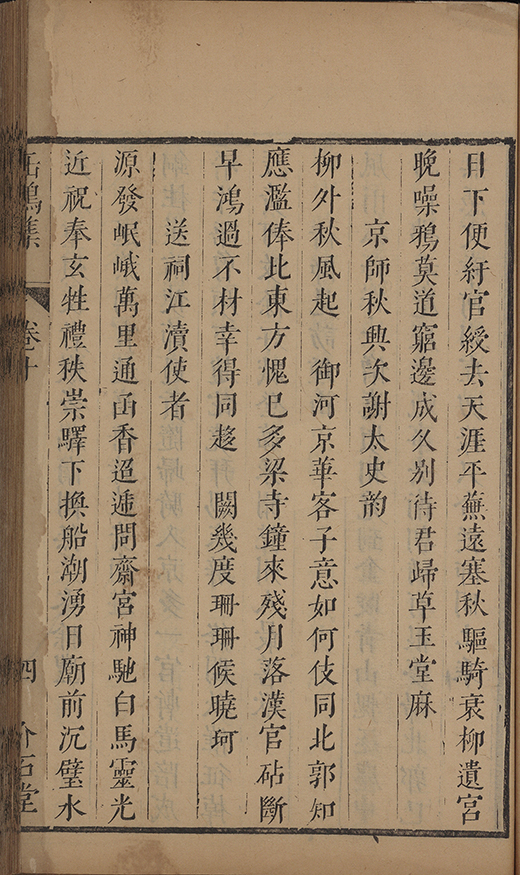 日下便紆官綬去天涯平蕪遠塞秋驅騎衰柳遺宮
晚噪鴉莫道窮邊成久别待君歸草玉堂麻
京師秋興次謝太史韵
柳外秋風起 御河京華客子意如何伎同北郭知
應濫俸比東方愧已多梁寺鐘來殘月落漢官砧斷
早鴻過不材幸得同趨 闕幾度珊珊候曉珂
送祠江瀆使者
源發岷峨萬里通函香迢遞問齋宮神馳白馬靈光
近祝奉玄牲禮秩崇驛下換船潮湧日廟前沉璧水
缶鳴集 卷十 四 介石堂